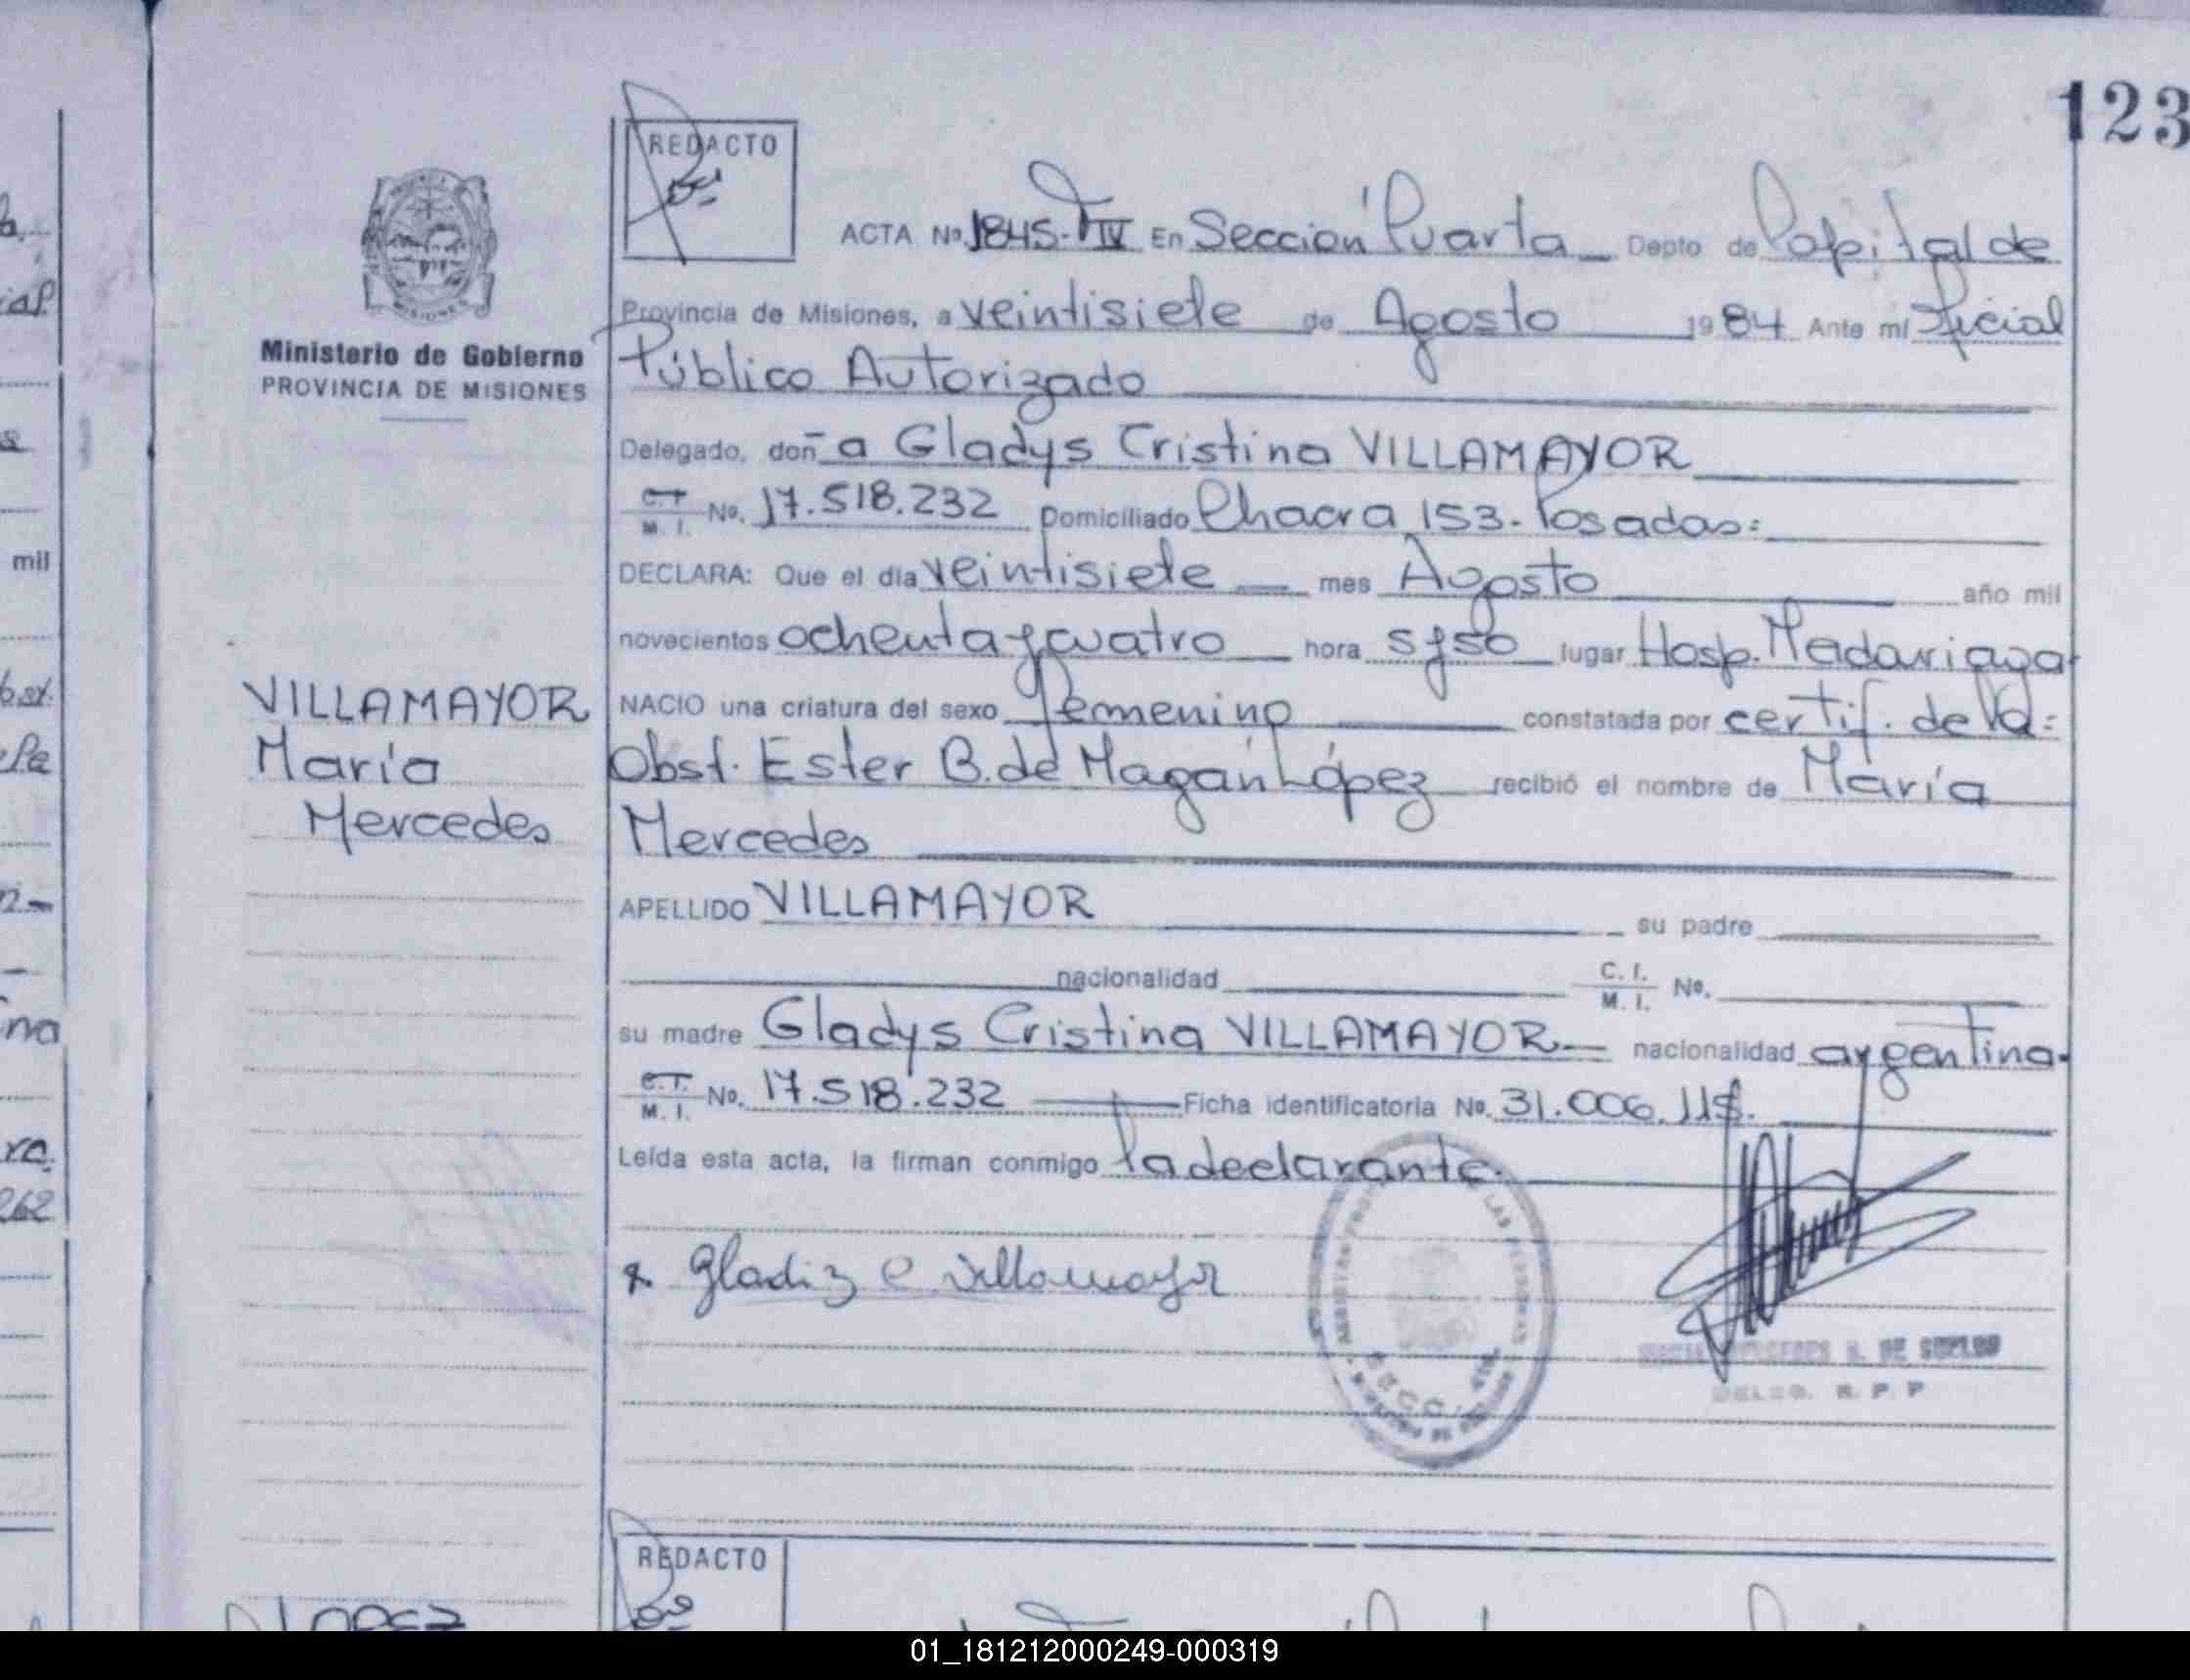 123
REDACTO
ACTA No. 1845-T IV En Sección Cuarta Depto de Capital de
Provincia de Misiones, a veintisiete de Agosto 1984 Ante mí Oficial
Público Autorizado
Delegado, doñ a Gladys Cristina VILLAMAYOR
C.I. M. I. No. 17.518.232 Domiciliado Chacra 153- Posadas=
DECLARA: Que el día veintisiete mes Agosto año mil
novecientos ochenta y cuatro hora 5 y 50 lugar Hosp. Madariaga
NACIO una criatura del sexo femenino constatada por certif. de la=
Obst. Ester B. de Magán López recibió el nombre de María
Mercedes
APELLIDO VILLAMAYOR su padre
nacionalidad C. I. M. I. No.
su madre Gladys Cristina VILLAMAYOR nacionalidad argentina-
C.I. M. I. No. 17.518.232 Ficha identificatoria No. 31.006.115.
Leída esta acta, la firman conmigo la declarante.
x Gladiz C Villamayor
DE LAS PERSONAS
SECC. 4ta.
DELEG. R. P. P
Ministerio de Gobierno
PROVINCIA DE MISIONES
VILLAMAYOR
María
Mercedes
MISIONES
mil
262
REDACTO
LOPEZ
01_181212000249-000319